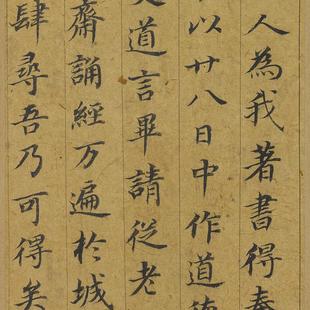 人為我著書得
以廿八日中作道
道言畢請從老
齋誦經万遍於城
肆尋吾乃可得矣